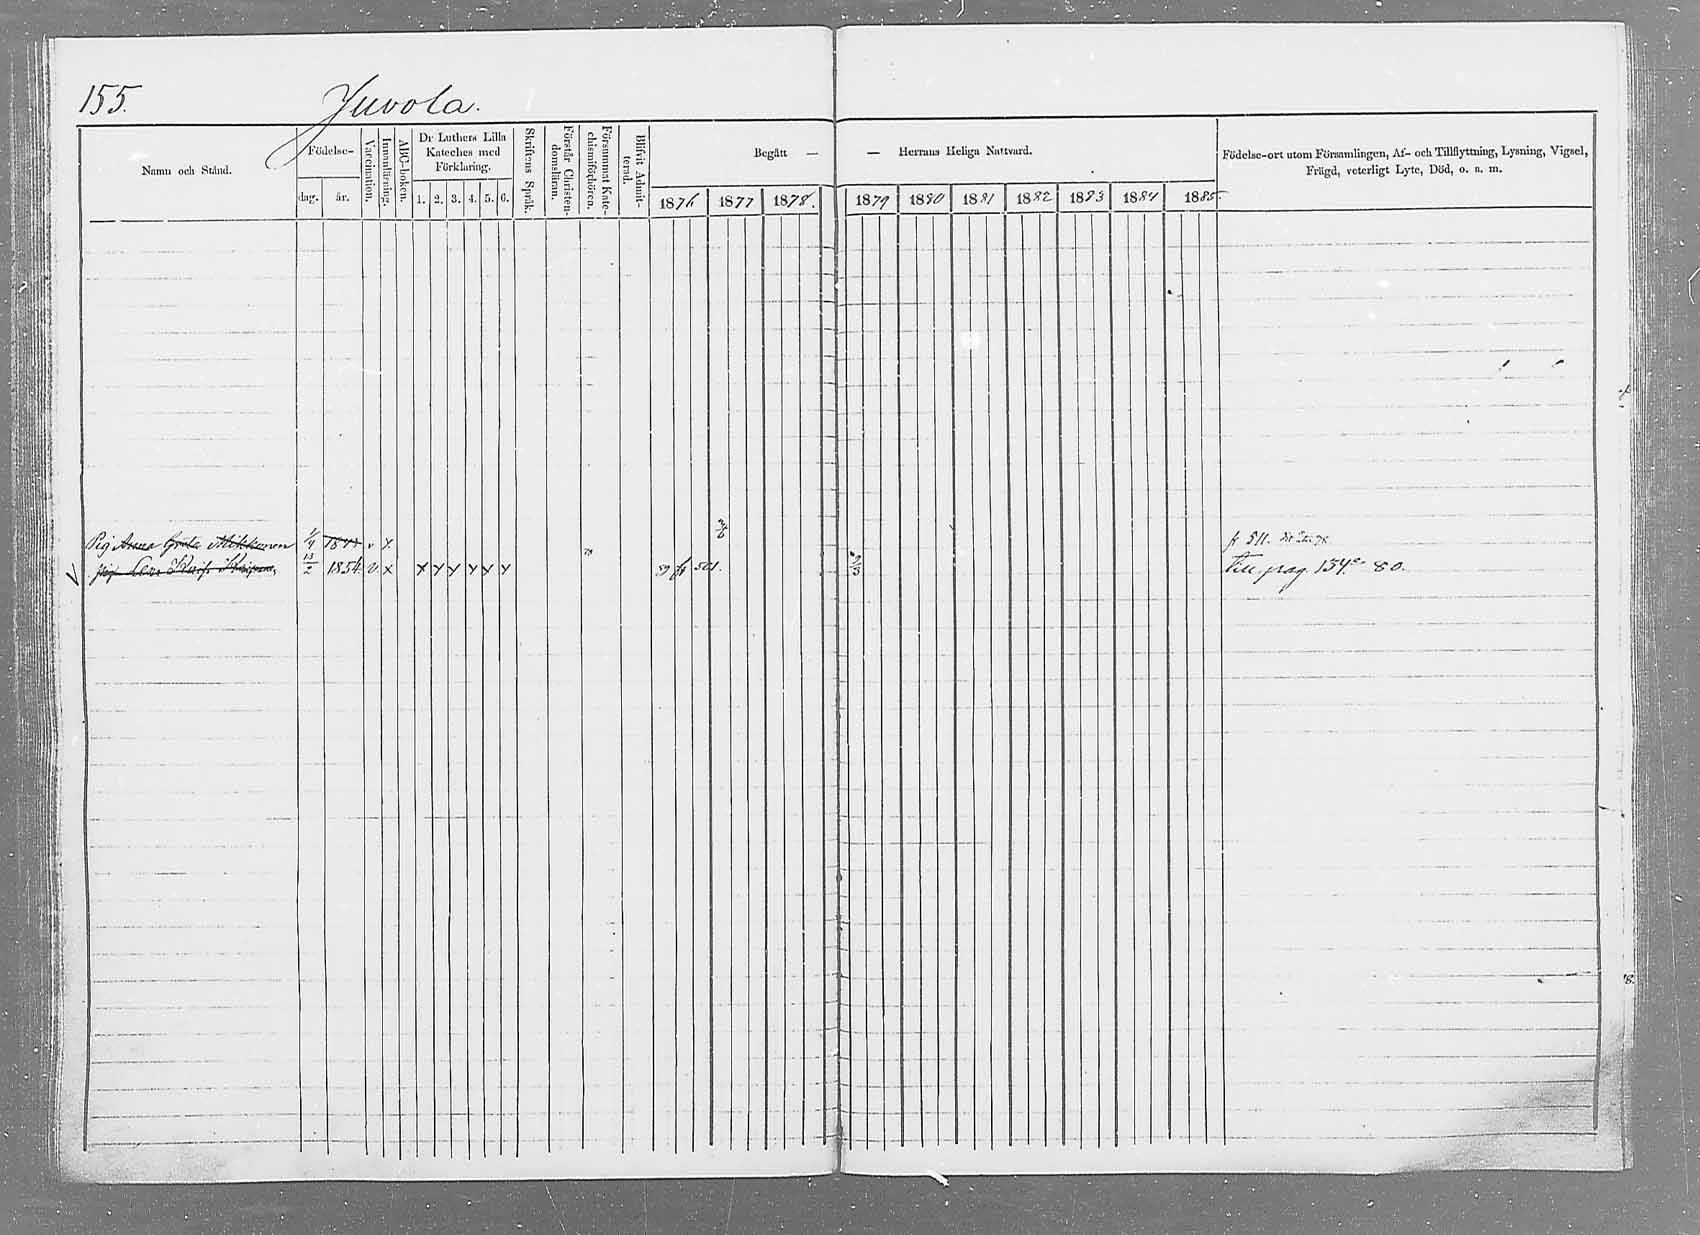 155.
Juvola.
Namn och Stånd.
Födelse-
dag. år.
Vaccination.
Innanläsning.
ABC-boken.
Dr Luthers Lilla
Kateches med
Förklaring.
1. 2. 3. 4. 5. 6.
Skriftens Språk.
Förstår Christen-
domsläran.
Försummat Kate-
chismiförhören.
Blifvit Admit-
terad.
Begått —
— Herrans Heliga Nattvard.
1876 1877 1878. 1879 1880 1881 1882 1883 1884 1885.
Födelse-ort utom Församlingen, Af- och Tillflyttning, Lysning, Vigsel,
Frägd, veterligt Lyte, Död, o. s. m.
Pig Anna Greta Mikkonen 1/4 v x fr 511.
13/2 1854 v x x x x x x x fr 501. 9/3 till pag 154 80.